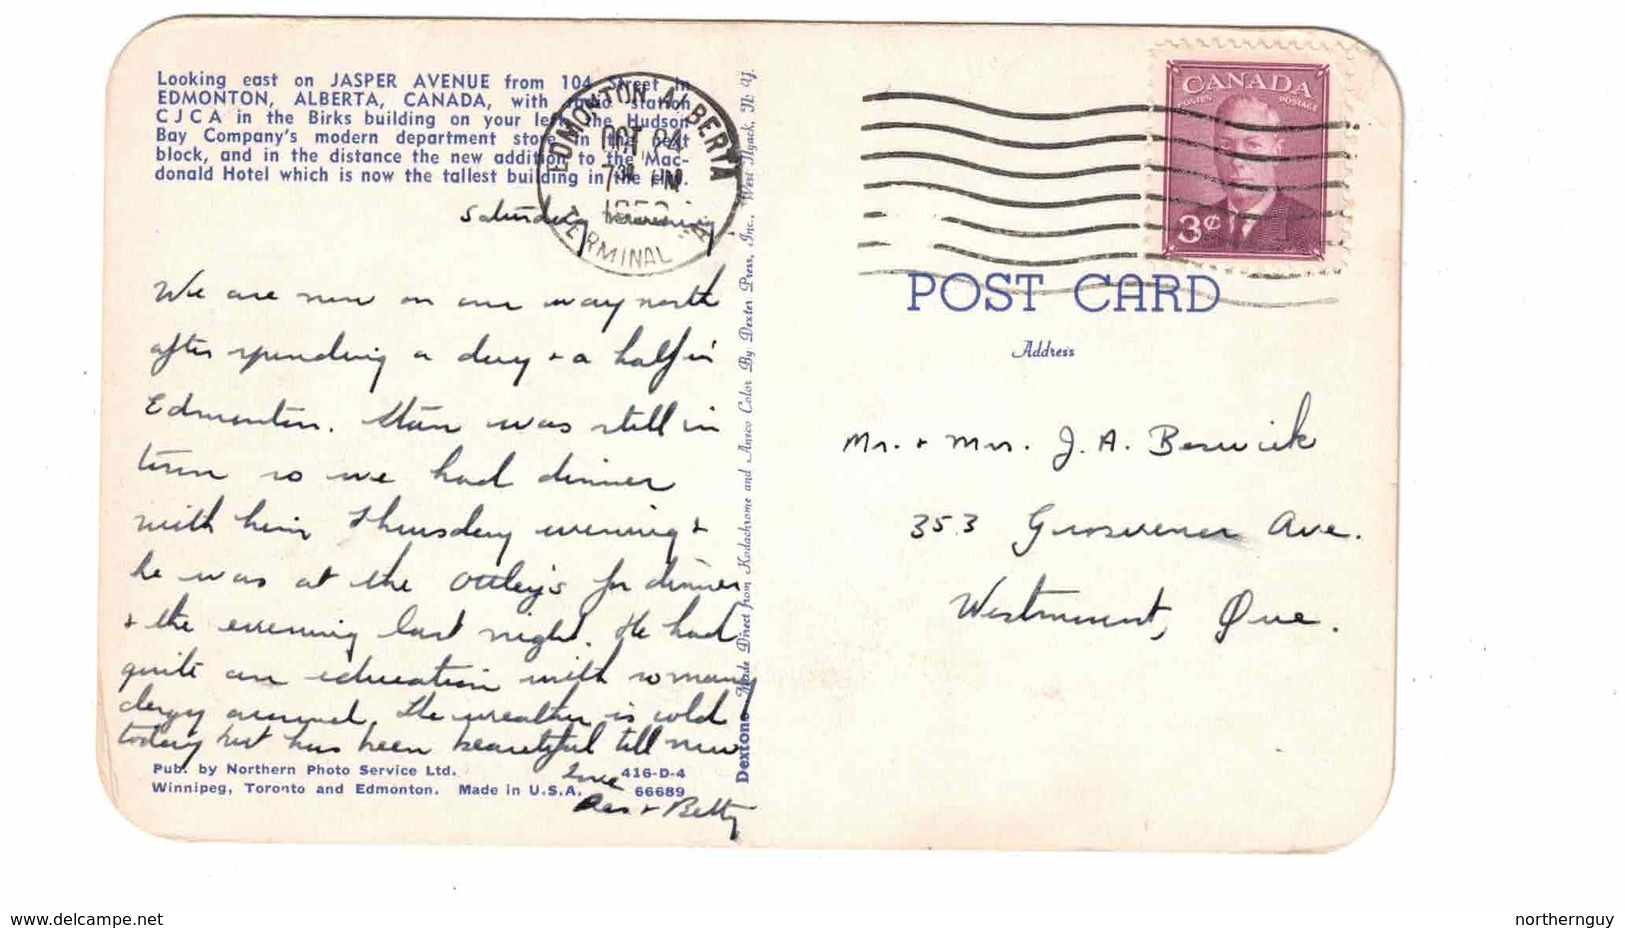 Looking east on JASPER AVENUE from 104 Street in
EDMONTON, ALBERTA, CANADA, with radio station
C J C A in the Birks building on your left, the Hudson
Bay Company's modern department store in the next
block, and in the distance the new addition to the Mac-
donald Hotel which is now the tallest building in the city.
Saturday morning
We are now on our way north
after spending a day + a half in
Edmonton. Stan was still in
town so we had dinner
with him Thursday evening +
he was at the Ottley's for dinner
+ the evening last night. He had
quite an education with so many
clergy around. The weather is cold
today but has been beautiful till now
Love
+ Betty
Pub. by Northern Photo Service Ltd. 416-D-4
Winnipeg, Toronto and Edmonton. Made in U.S.A. 66689
Dextone Made Direct from Kodachrome and Ansco Color By Dexter Press, Inc., West Nyack, N. Y.
EDMONTON ALBERTA
OCT 24
TERMINAL "A"
CANADA
POSTES POSTAGE
3¢
POST CARD
Address
Mr. + Mrs. J. A. Berwick
353 Grosvenor Ave.
Westmount, Que.
www.delcampe.net
northernguy